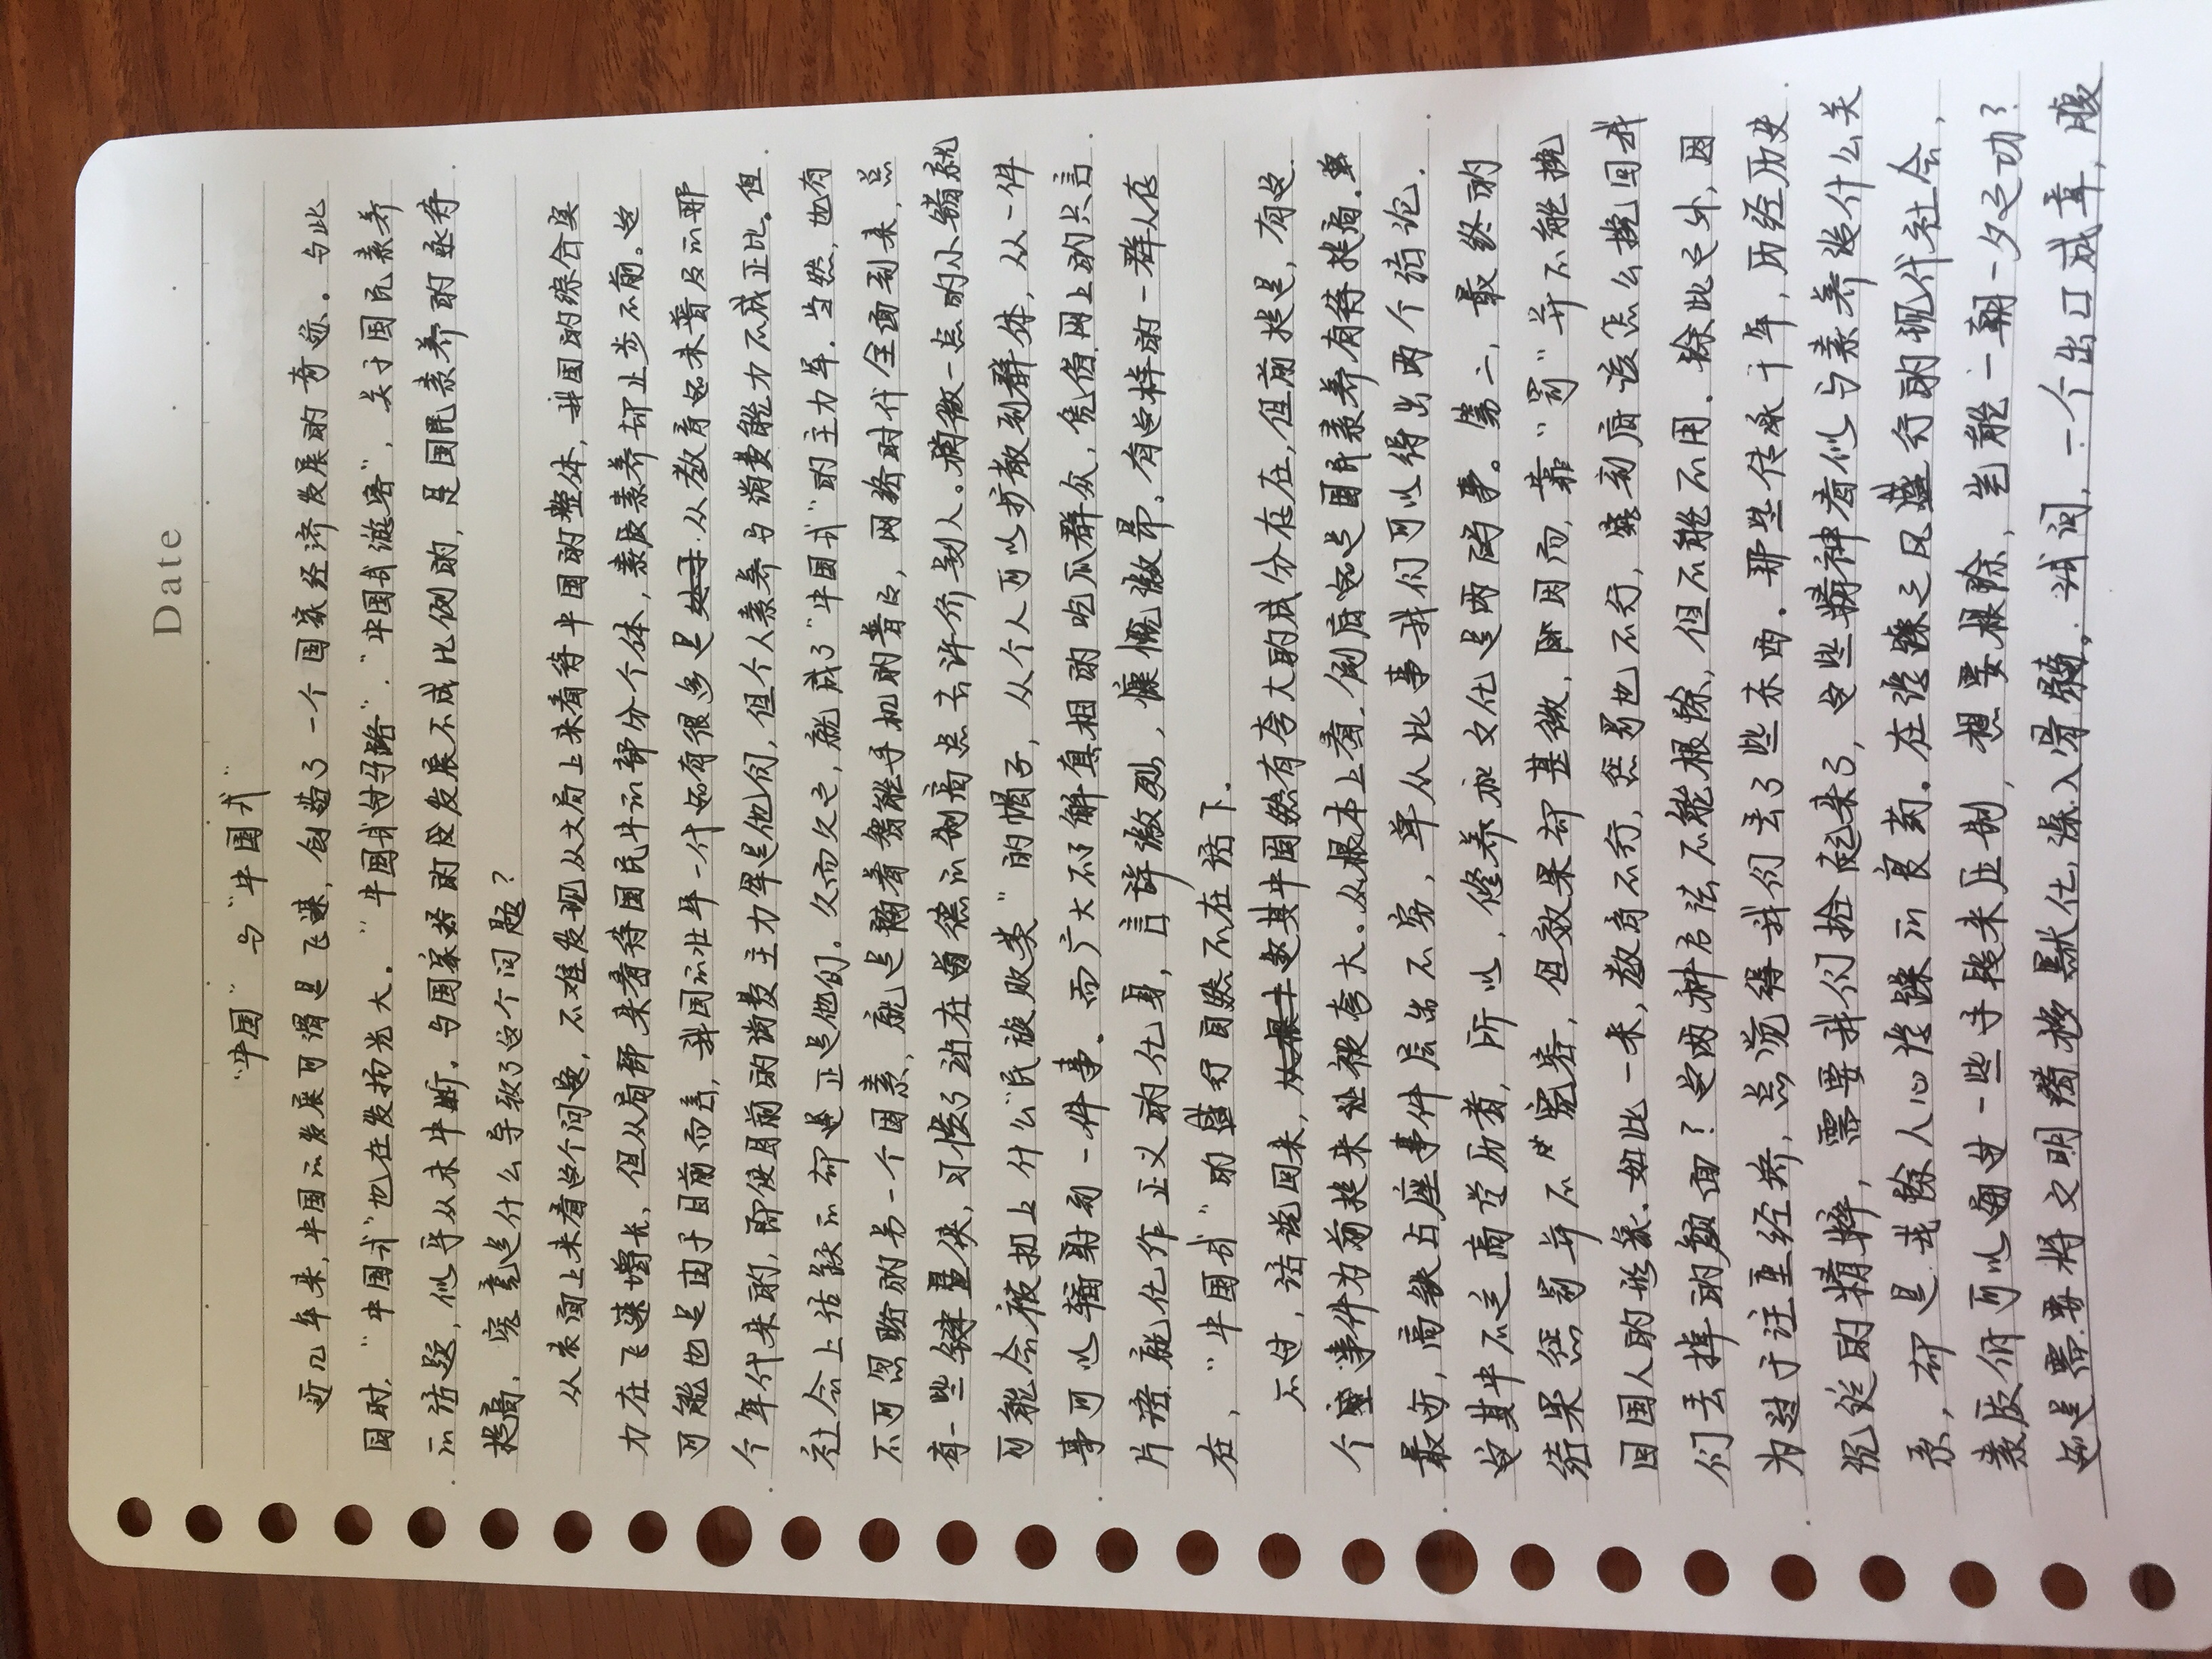 Date
“中国”与“中国式”
近几年来,中国的发展可谓是飞速,创造了一个国家经济发展的奇迹。与此
同时,“中国式”也在发扬光大。“中国式过马路”.“中国式游客”,关于国民素养
的话题,似乎从未中断。与国家的发展不成比例的,是国民素养的亟待
提高,究竟是什么导致了这个问题?
从表面上来看这个问题,不难发现从大局上来看待中国的整体,我国的综合实
力在飞速增长,但从局部来看待国民中的部分个体,素质素养却止步不前。这
可能也是由于目前而言,我国的壮年一代还有很多是从教育还未普及的那
个年代来的,即使目前的消费主力军是他们,但个人素养与消费能力不成正比。但
社会上活跃的却还正是他们。久而久之,就成了“中国式”的主力军。当然,也有
不可忽略的另一个因素,就是随着智能手机的普及,网络时代全面到来,总
有一些键盘侠,习惯了站在道德的制高点去评价别人。稍微一点的小错就
可能会被扣上什么“民族败类”的帽子,从个人可以扩散到群体,从一件
事可以辐射到一件事。而广大不了解真相的吃瓜群众,凭借网上的只言
片语就化作正义的化身,言辞激烈,慷慨激昂,有这样的一群人存
在,“中国式”的盛行自然不在话下。
不过,话说回来,这其中固然有夸大的成分存在,但前提是,有这
个事件为前提来被夸大。从根本上看,倒后还是国民素养有待提高。单
最近,高铁占座事件层出不穷,单从此事我们可以得出两个结论,
这其中不乏高学历者,所以,修养和文化是两码事。第二,最终的
结果惩罚并不完善,但效果却甚微,因而,靠“罚”并不能挽
回国人的形象。如此一来,教育不行,惩罚也不行,最初应该怎么挽回我
们丢掉的颜面?这两种方法不能根除,但不能不用。除此之外,因
为过于注重经济,总觉得我们丢了些东西。那些传承千年,历经历史
沉淀的精粹,需要我们捡起来了,这些精神看似与素养没什么关
系,却是去除人心浮躁的良药。在浮躁之风盛行的现代社会,
素质们可以通过一些手段来压制,想要根除,岂能一朝一夕之功?
还是需要将文明潜移默化,深入骨髓。试问,一个出口成章,腹